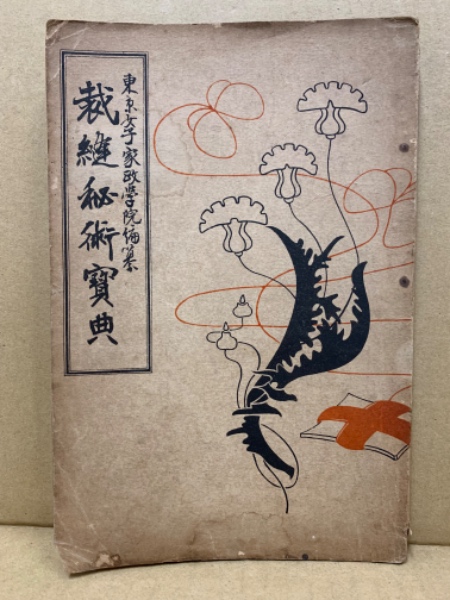 東京女子家政学院編纂
裁縫秘術寳典